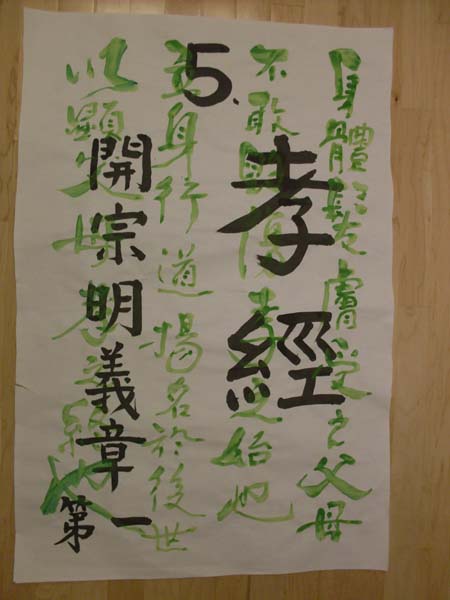 5.
孝經
開宗明義章
第一
身體髮膚受之父母
不敢毀傷孝之始也
立身行道揚名於後世
以顯父母孝之終也